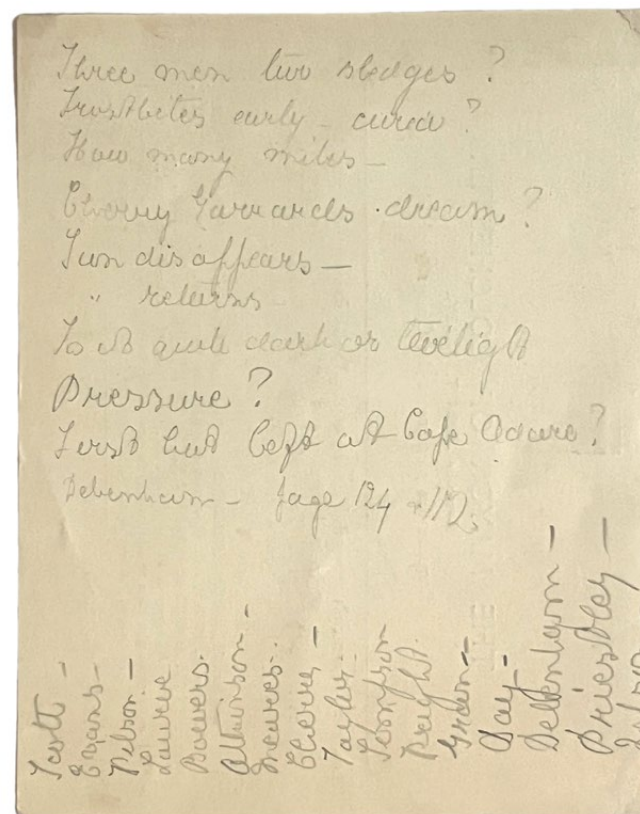 Three men two sledges ?
Frostbites early - cured ?
How many miles -
Cherry Garrards dream ?
Sun disappears —
" returns
Is it quite dark or twilight
Pressure ?
First hut left at Cape Adare ?
Debenham - page 124 - 112.
Scott -
Evans -
Wilson -
Laurie
Bowers.
Atkinson -
Meares.
Cherry -
Taylor -
Simpson
Wright.
Gran -
Day -
Debenham -
Priestley -